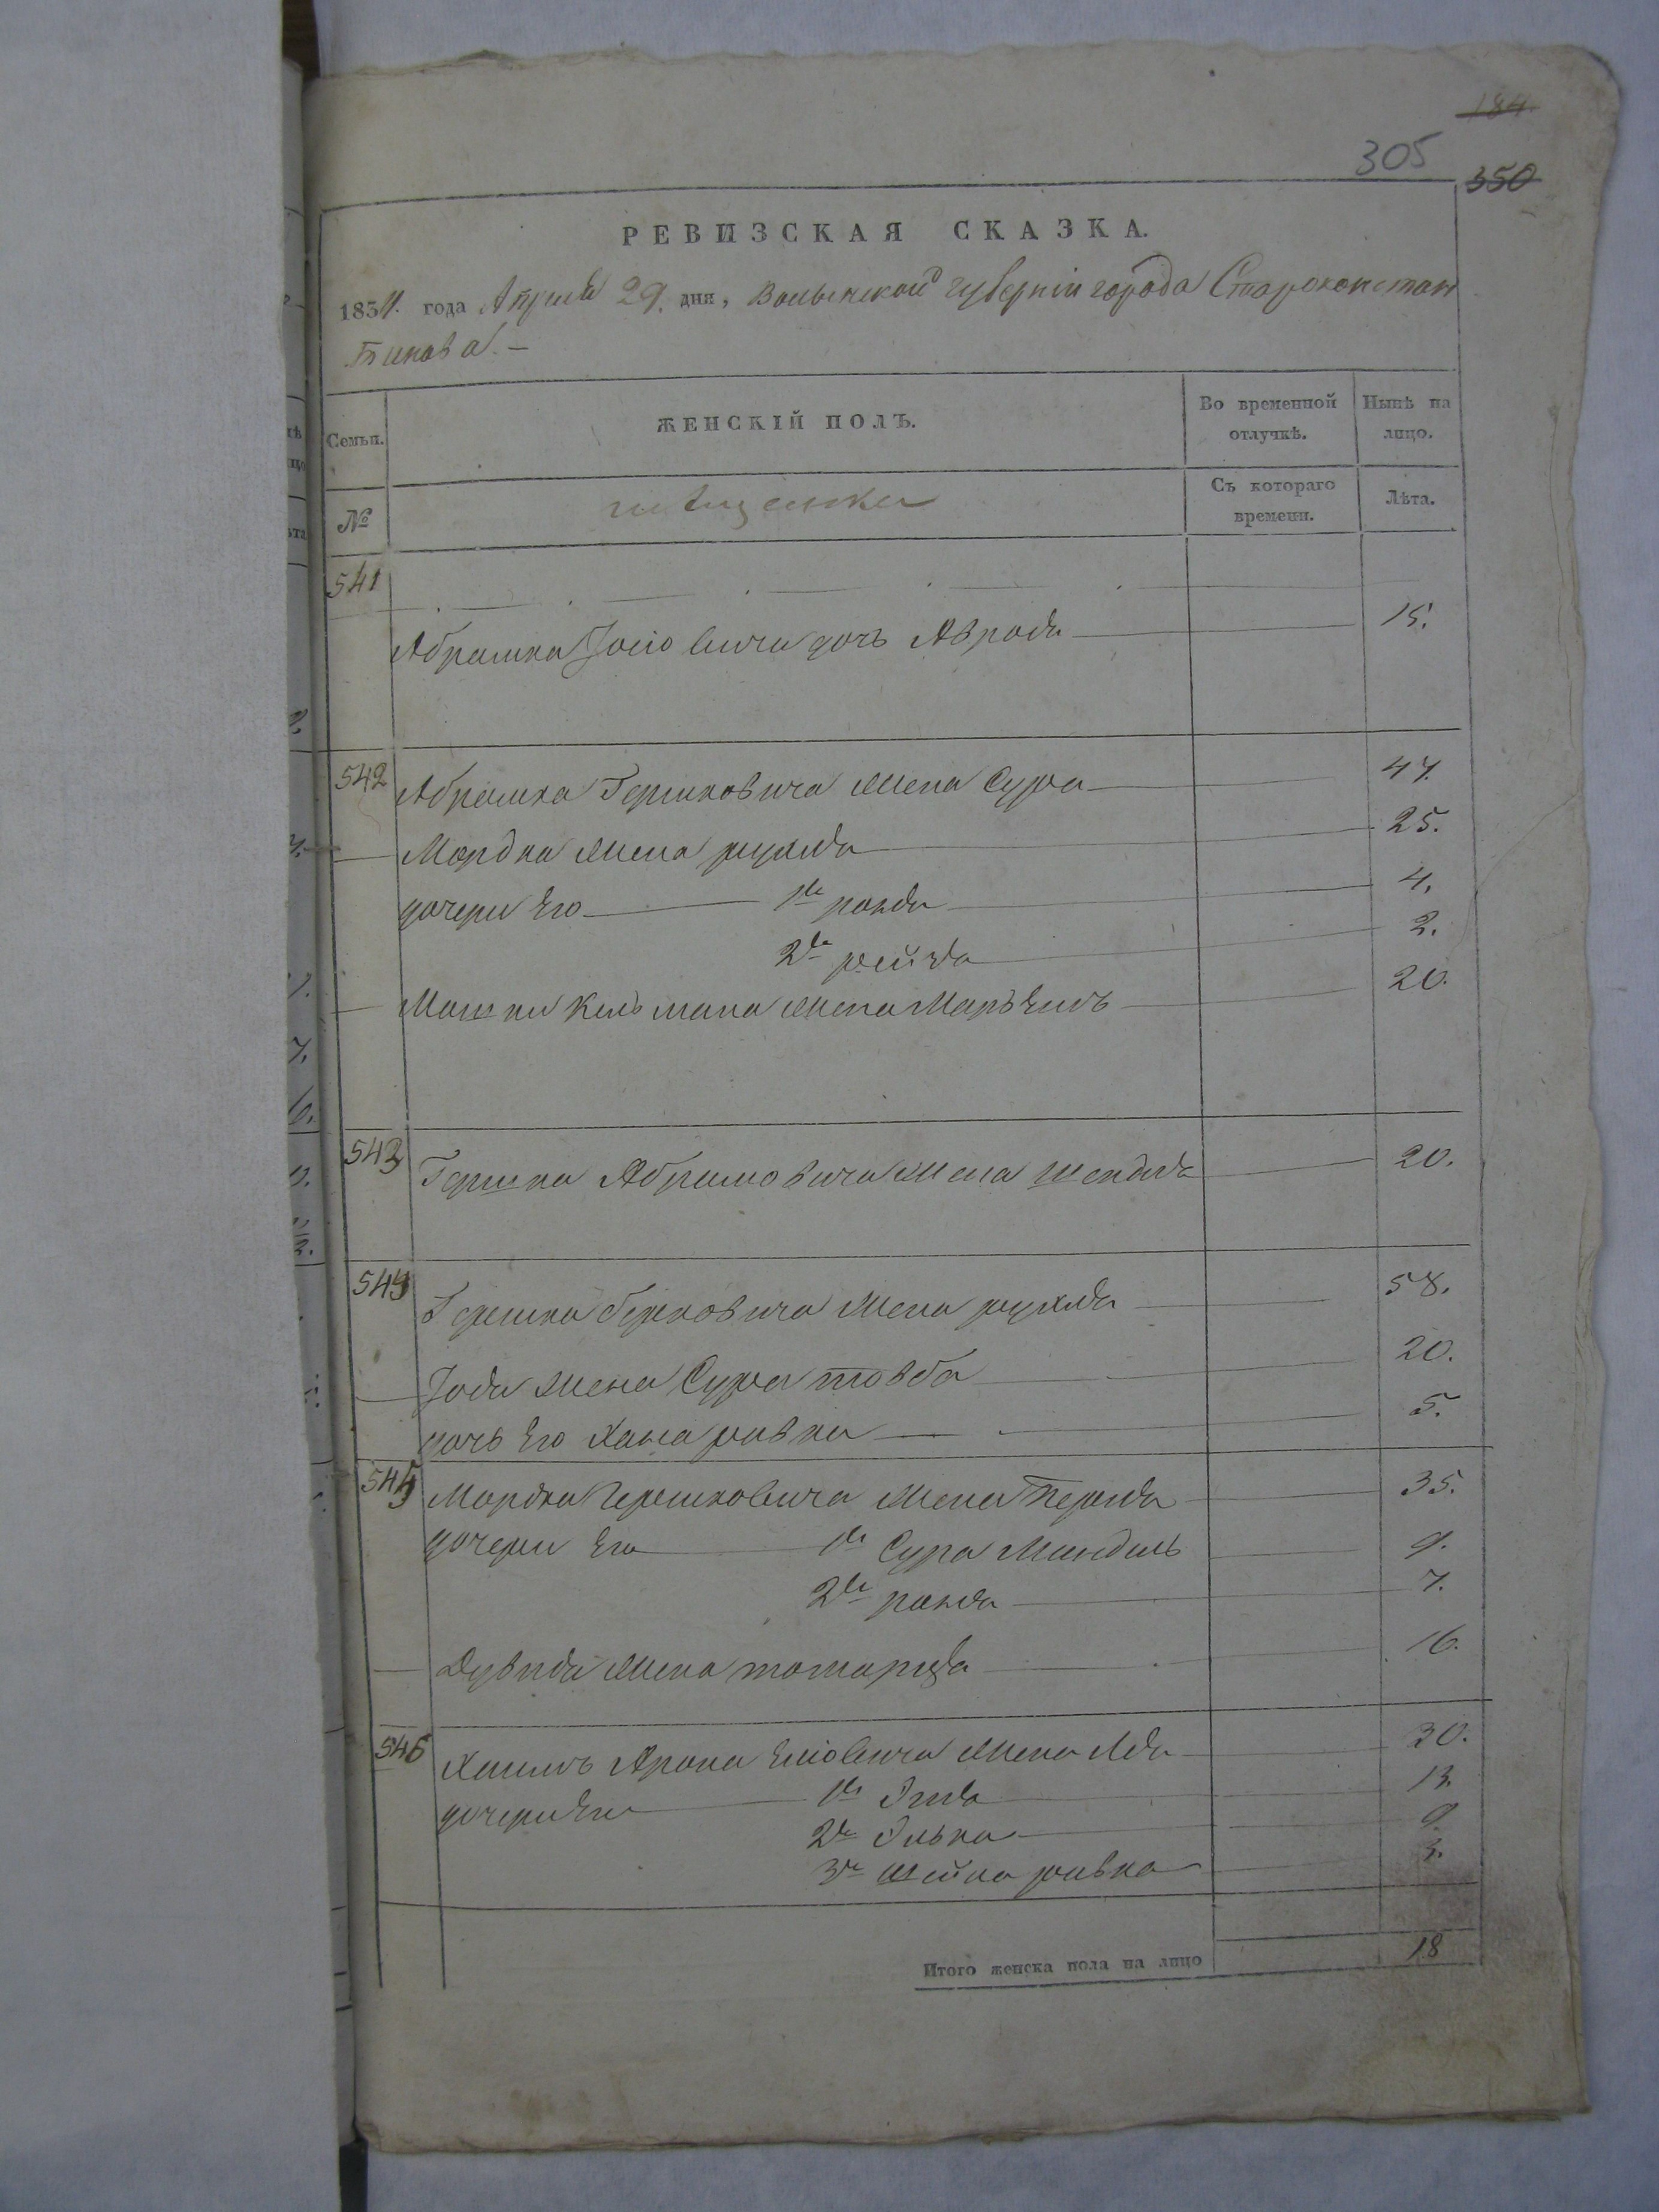 184.
305
350
РЕВИЗСКАЯ СКАЗКА.
1834. года Апреля 29. дня, Волынской губерніи города Старокостан
тинова. –
Семьи. ЖЕНСКІЙ ПОЛЪ. Во временной отлучкѣ. Нынѣ на лицо.
№ Съ котораго времени. Лѣта.
541
Абрашка Іосіовича дочь 15.
542 Абрашка Гершковича жена Сура 47.
Мордка жена рухля 25.
дочери Его 1я 4.
2я рейзя 2.
Кельмана жена Маръемъ 20.
543 Гершка Абрамовича жена шендля 20.
544 Гершка Берковича жена рухля 58.
жена Сура товба 20.
дочь Его Хана ривка 5.
545 Мордка Гершковича жена Перля 35.
дочери Его 1я Сура Миндль 9.
2я 7.
Дувида жена 16.
546 Хаимъ Арона жена 30.
дочери Его 1я 13.
2я 9.
3я шейна ривка 3.
Итого женска пола на лицо 18